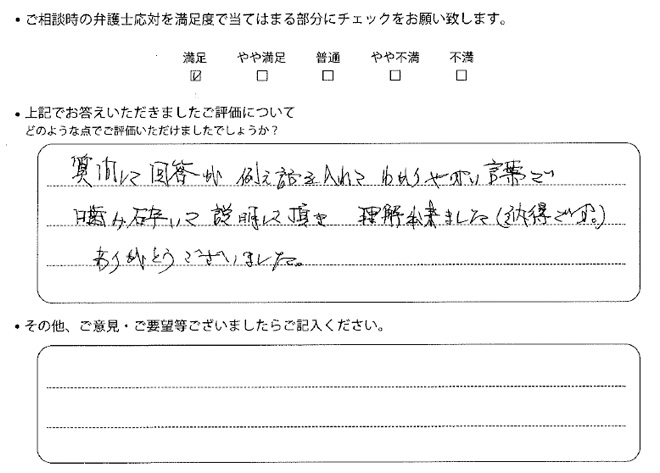 ・ご相談時の弁護士応対を満足度で当てはまる部分にチェックをお願い致します。
満足 やや満足 普通 やや不満 不満
☑ □ □ □ □
・上記でお答えいただきましたご評価について
どのような点でご評価いただけましたでしょうか？
質問して回答が 例え話を入れて わかりやすい言葉で
噛み砕いて説明して頂き 理解出来ました(納得です。)
ありがとうございました。
・その他、ご意見・ご要望等ございましたらご記入ください。